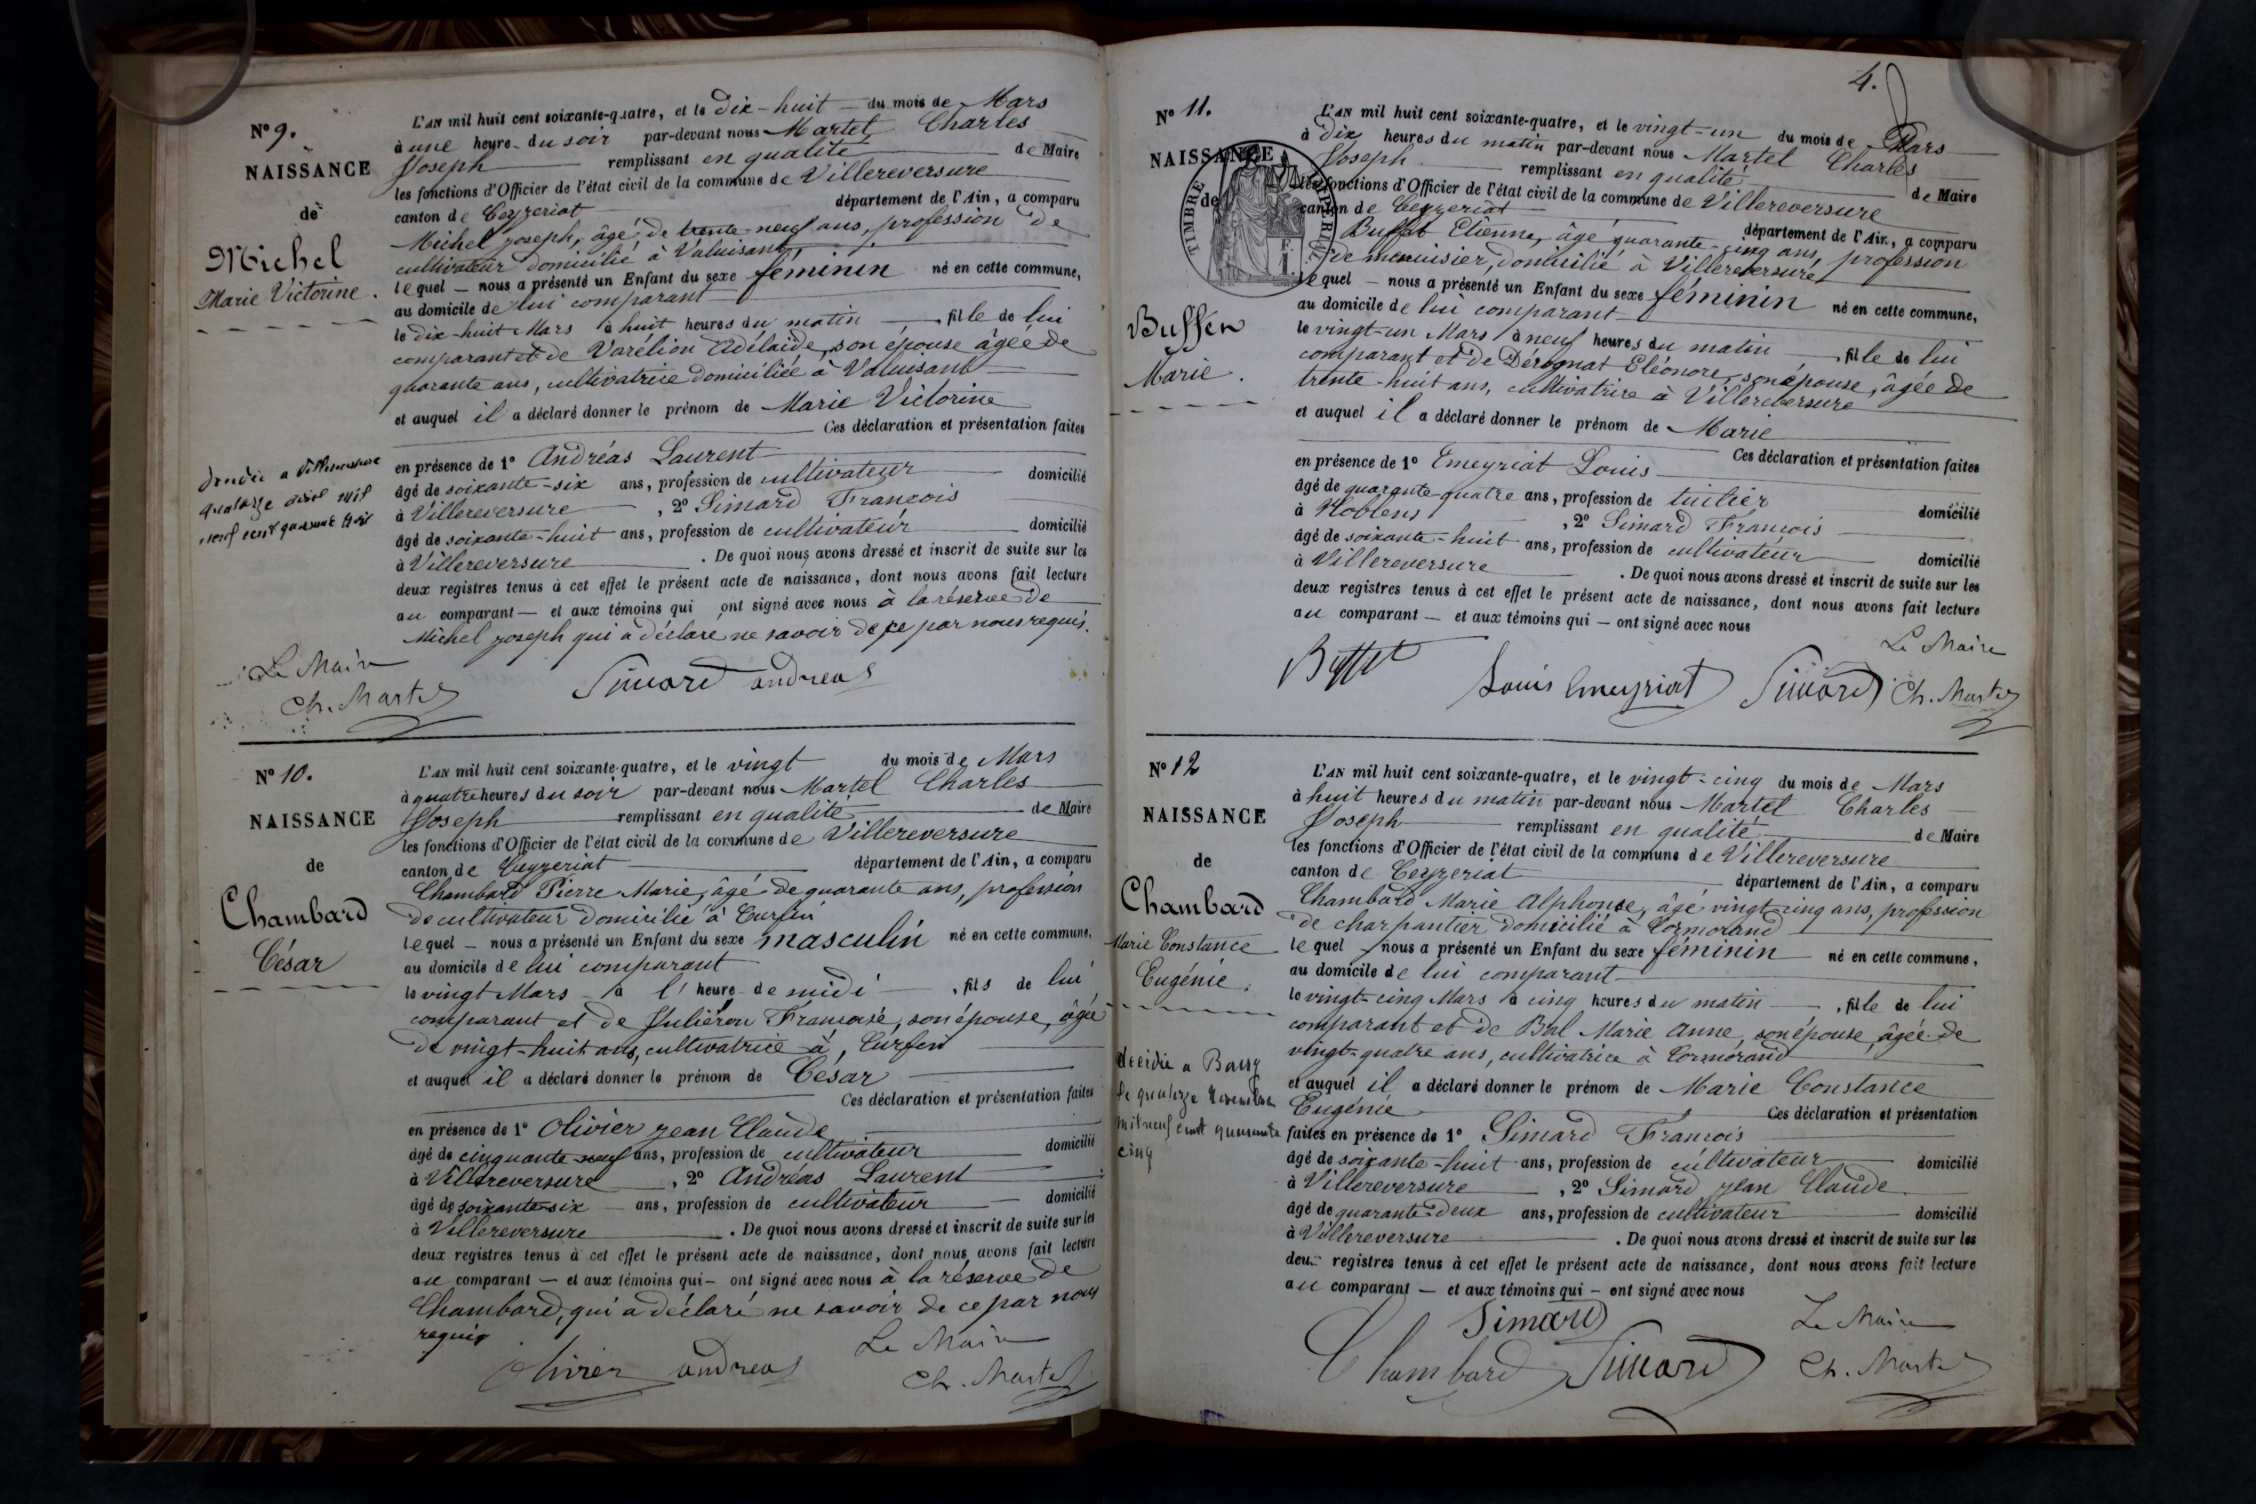 Nº 9.
NAISSANCE
de
Michel
Marie Victorine.
L'AN mil huit cent soixante-quatre, et le dix-huit du mois de Mars
à une heure du soir par-devant nous Martel Charles
Joseph remplissant en qualité de Maire
les fonctions d'Officier de l'état civil de la commune de Villereversure
canton de Ceyzeriat département de l'Ain, a comparu
Michel joseph, âgé de trente neuf ans, profession de
cultivateur domicilié à Valuisant
lequel nous a présenté un Enfant du sexe féminin né en cette commune,
au domicile de lui comparant
le dix-huit Mars à huit heures du matin, fille de lui
comparant et de Varélion Adélaïde, son épouse âgée de
quarante ans, cultivatrice domiciliée à Valuisant
et auquel il a déclaré donner le prénom de Marie Victorine
Ces déclaration et présentation faites
en présence de 1º Andréas Laurent
âgé de soixante-six ans, profession de cultivateur domicilié
à Villereversure, 2º Simard François
âgé de soixante-huit ans, profession de cultivateur domicilié
à Villereversure. De quoi nous avons dressé et inscrit de suite sur les
deux registres tenus à cet effet le présent acte de naissance, dont nous avons fait lecture
au comparant — et aux témoins qui ont signé avec nous à la réserve de
Michel joseph qui a déclaré ne savoir de ce par nous requis.
décédée a Villereversure
quatorze avril mil
neuf cent quarante trois
Le Maire
Ch. Martel
Simard andreas
Nº 10.
NAISSANCE
de
Chambard
César
L'AN mil huit cent soixante-quatre, et le vingt du mois de Mars
à quatre heures du soir par-devant nous Martel Charles
Joseph remplissant en qualité de Maire
les fonctions d'Officier de l'état civil de la commune de Villereversure
canton de Ceyzeriat département de l'Ain, a comparu
Chambard Pierre Marie, âgé de quarante ans, profession
de cultivateur domicilié à Curfin
lequel — nous a présenté un Enfant du sexe masculin né en cette commune,
au domicile de lui comparant
le vingt Mars à l'heure de midi, fils de lui
comparant et de Juliéron Françoise, son épouse, âgée
de vingt-huit ans, cultivatrice à, Curfin
et auquel il a déclaré donner le prénom de César
Ces déclaration et présentation faites
en présence de 1º Olivier jean Claude
âgé de cinquante-neuf ans, profession de cultivateur domicilié
à Villereversure, 2º Andréas Laurent
âgé de soixante-six ans, profession de cultivateur domicilié
à Villereversure. De quoi nous avons dressé et inscrit de suite sur les
deux registres tenus à cet effet le présent acte de naissance, dont nous avons fait lecture
au comparant — et aux témoins qui — ont signé avec nous à la réserve de
Chambard, qui a déclaré ne savoir de ce par nous
requis
Le Maire
Olivier andreas Ch. Martel
4.
Nº 11.
NAISSANCE
de
TIMBRE IMPERIAL
Buffet
Marie.
L'AN mil huit cent soixante-quatre, et le vingt-un du mois de Mars
à dix heures du matin par-devant nous Martel Charles
Joseph remplissant en qualité de Maire
les fonctions d'Officier de l'état civil de la commune de Villereversure
canton de Ceyzeriat département de l'Ain, a comparu
Buffet Etienne, âgé quarante-cinq ans, profession
de menuisier, domicilié à Villereversure
lequel — nous a présenté un Enfant du sexe féminin né en cette commune,
au domicile de lui comparant
le vingt-un Mars à neuf heures du matin, fille de lui
comparant et de Dérognat Eléonore, son épouse, âgée de
trente-huit ans, cultivatrice à Villereversure
et auquel il a déclaré donner le prénom de Marie
Ces déclaration et présentation faites
en présence de 1º Emeyriat Louis
âgé de quarante-quatre ans, profession de tuilier domicilié
à Noblens, 2º Simard François
âgé de soixante-huit ans, profession de cultivateur domicilié
à Villereversure. De quoi nous avons dressé et inscrit de suite sur les
deux registres tenus à cet effet le présent acte de naissance, dont nous avons fait lecture
au comparant — et aux témoins qui — ont signé avec nous
Le Maire
Buffet Louis Emeyriat Simard Ch. Martel
Nº 12
NAISSANCE
de
Chambard
Marie Constance
Eugénie.
L'AN mil huit cent soixante-quatre, et le vingt-cinq du mois de Mars
à huit heures du matin par-devant nous Martel Charles
Joseph remplissant en qualité de Maire
les fonctions d'Officier de l'état civil de la commune de Villereversure
canton de Ceyzeriat département de l'Ain, a comparu
Chambard Marie Alphonse, âgé vingt-cinq ans, profession
de charpantier domicilié à Cormorand
lequel nous a présenté un Enfant du sexe féminin né en cette commune,
au domicile de lui comparant
le vingt-cinq Mars à cinq heures du matin, fille de lui
comparant et de Bal Marie Anne, son épouse âgée de
vingt-quatre ans, cultivatrice à Cormorand
et auquel il a déclaré donner le prénom de Marie Constance
Eugénie Ces déclaration et présentation
faites en présence de 1º Simard François
âgé de soixante-huit ans, profession de cultivateur domicilié
à Villereversure, 2º Simard jean Claude
âgé de quarante-deux ans, profession de cultivateur domicilié
à Villereversure. De quoi nous avons dressé et inscrit de suite sur les
deux registres tenus à cet effet le présent acte de naissance, dont nous avons fait lecture
au comparant — et aux témoins qui — ont signé avec nous
décédée a Bourg
le quatorze Novembre
mil neuf cent quarante
cinq
Simard Le Maire
Chambard Simard Ch. Martel